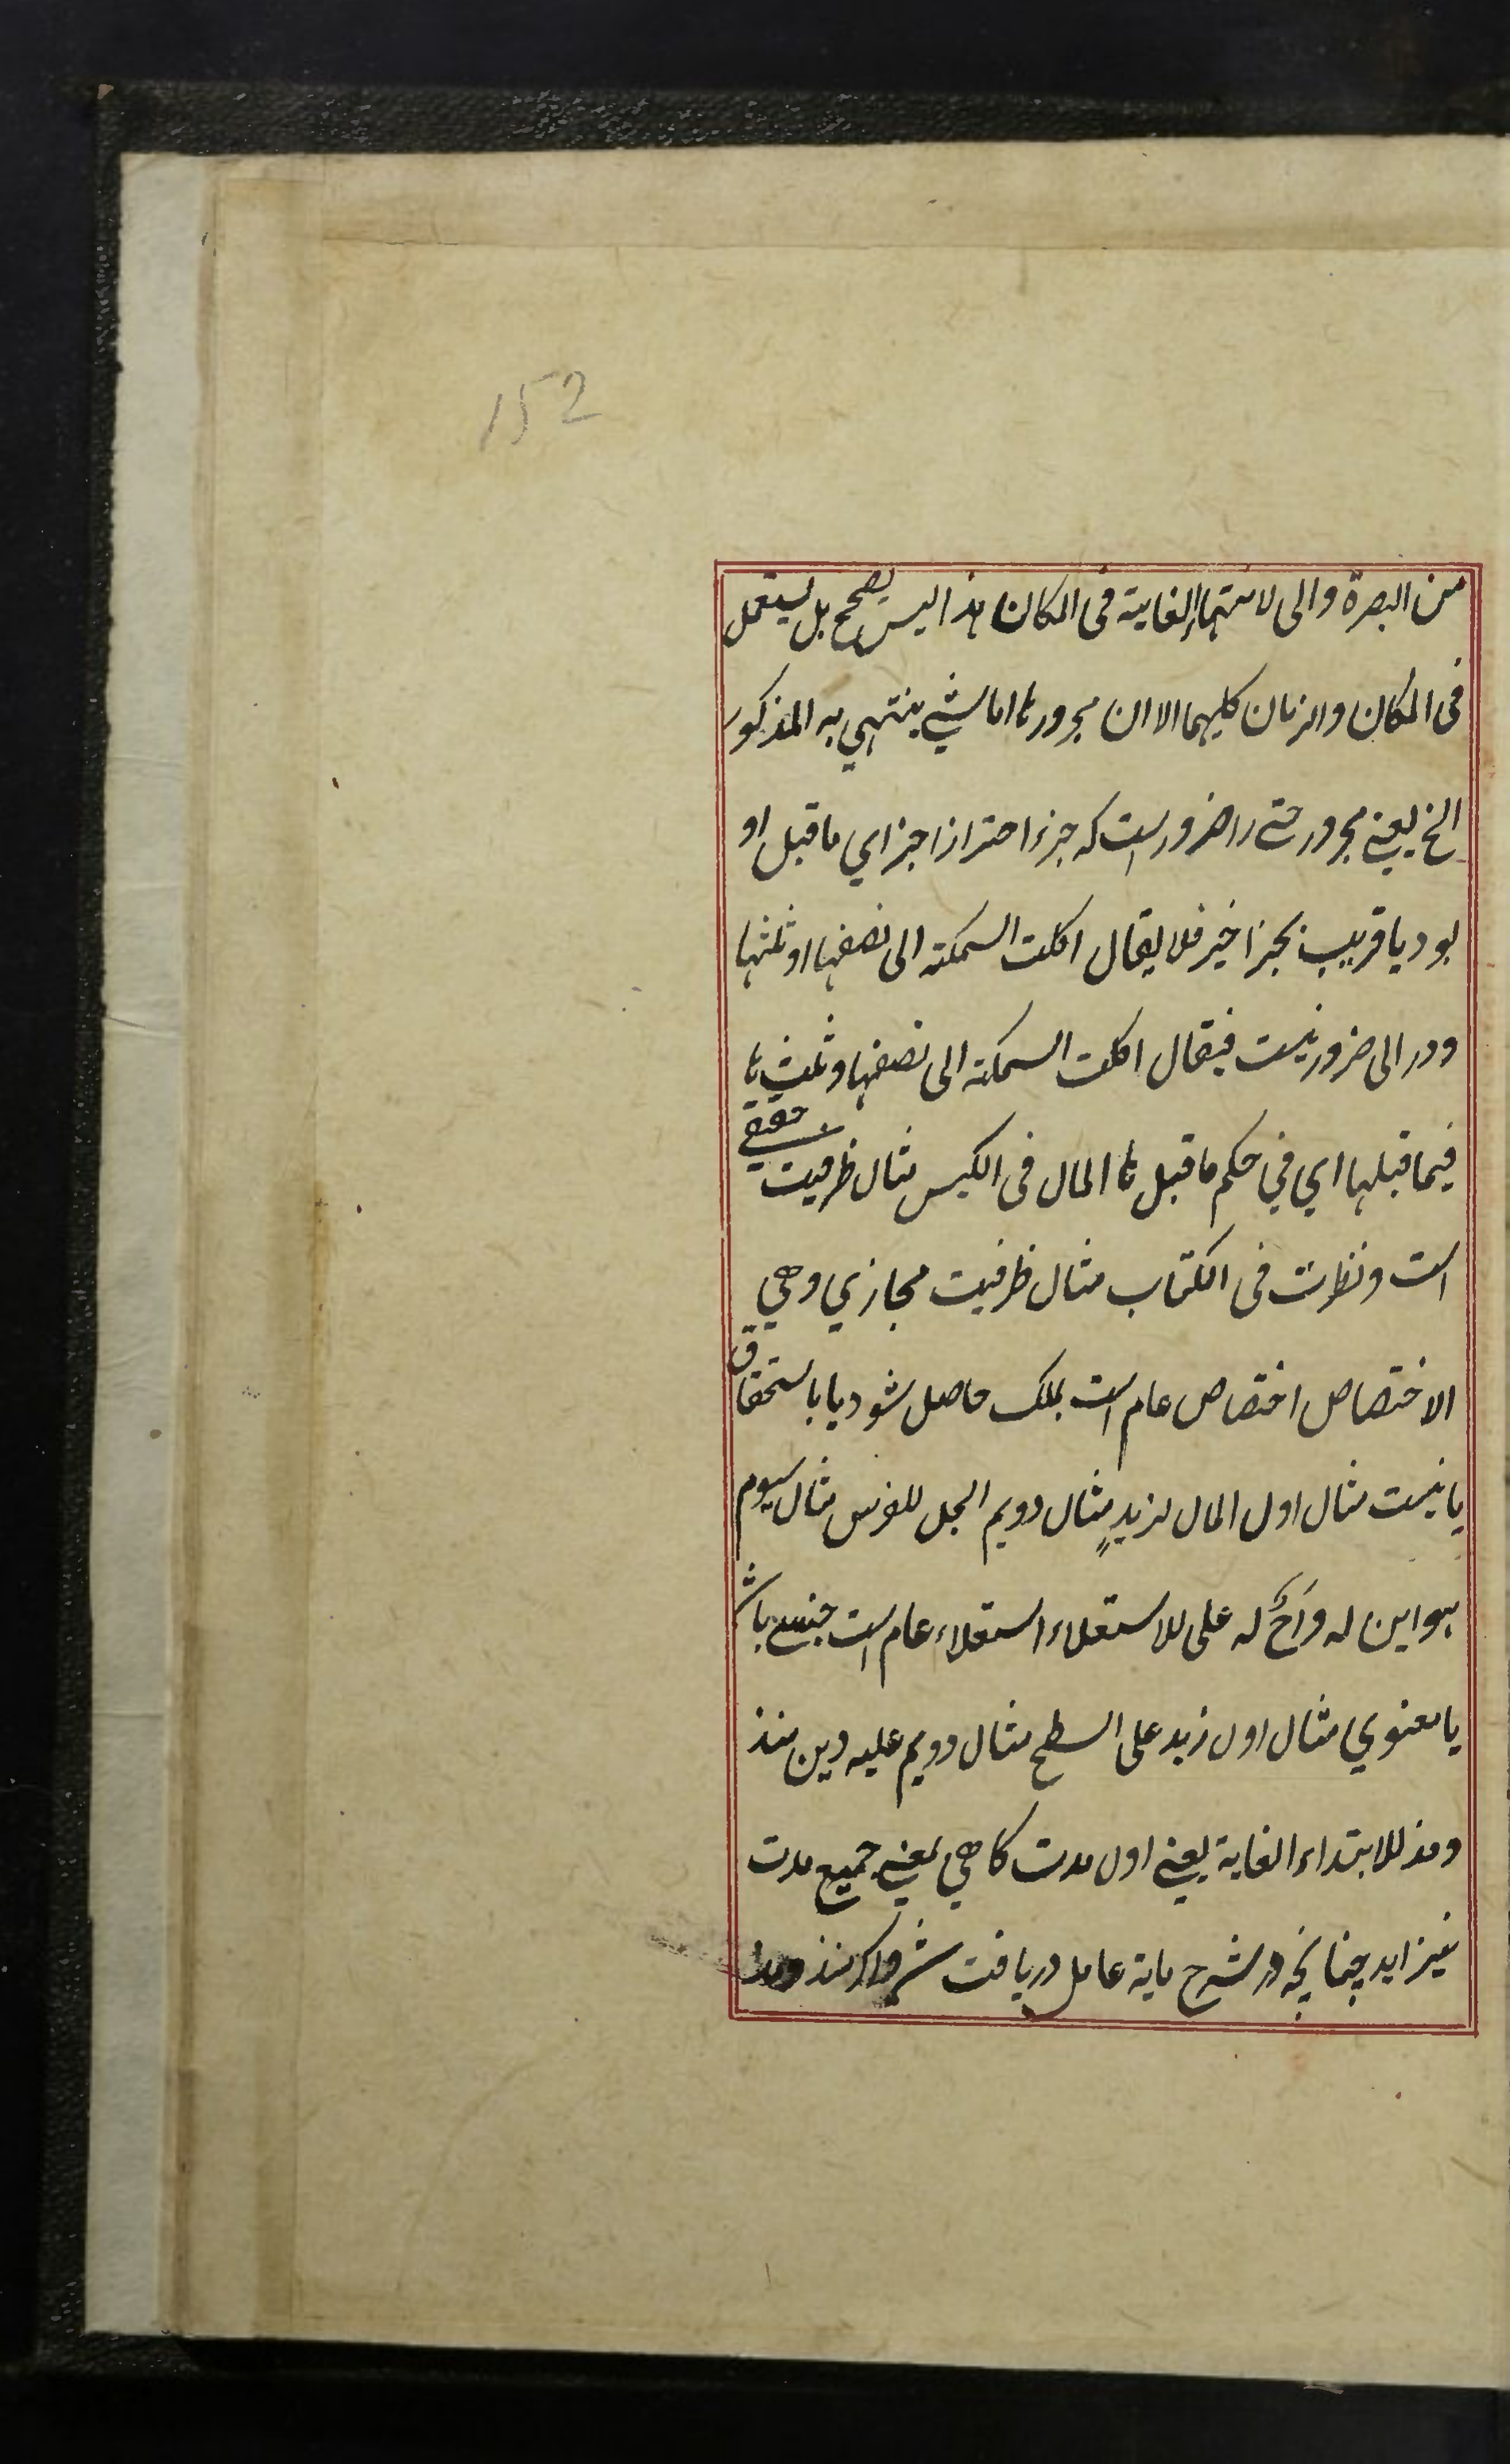 152
من البصرة والی لانتهاء الغایة فی المکان هذا لیس بصحیح بل یستعمل
فی المکان والزمان کلیهما الا ان مجرورها اما شیء ینتهی به المذکور
الخ یعنے مجرور حتے را ضرور است که جزء اخر از اجزاي ماقبل او
بود یا قریب بجز اخیر فلا یقال اکلت السمکته الی نصفها او ثلثها
ودر الی ضرور نیست فیقال اکلت السمکته الی نصفها و ثلثها
فیما قبلها اي في حکم ما قبلها المال فی الکیس مثال ظرفیت حقیقے
است ونظرت فی الکتاب مثال ظرفیت مجازي وهي
الاختصاص اختصاص عام است بملک حاصل شود یا باستحقاق
یا نیست مثال اول المال لزیدٍ مثال دویم الجل للفرس مثال سیوم
هو ابن له واخٌ له علی للاستعلاء استعلاء عام است حسے باشد
یا معنوي مثال اول زید علی السطح مثال دویم علیه دین منذ
ومذ للابتداء الغایة یعنے اول مدت کاهي بمعنے جمیع مدت
نیز اید چنانچه در شرح مایة عامل دریافت